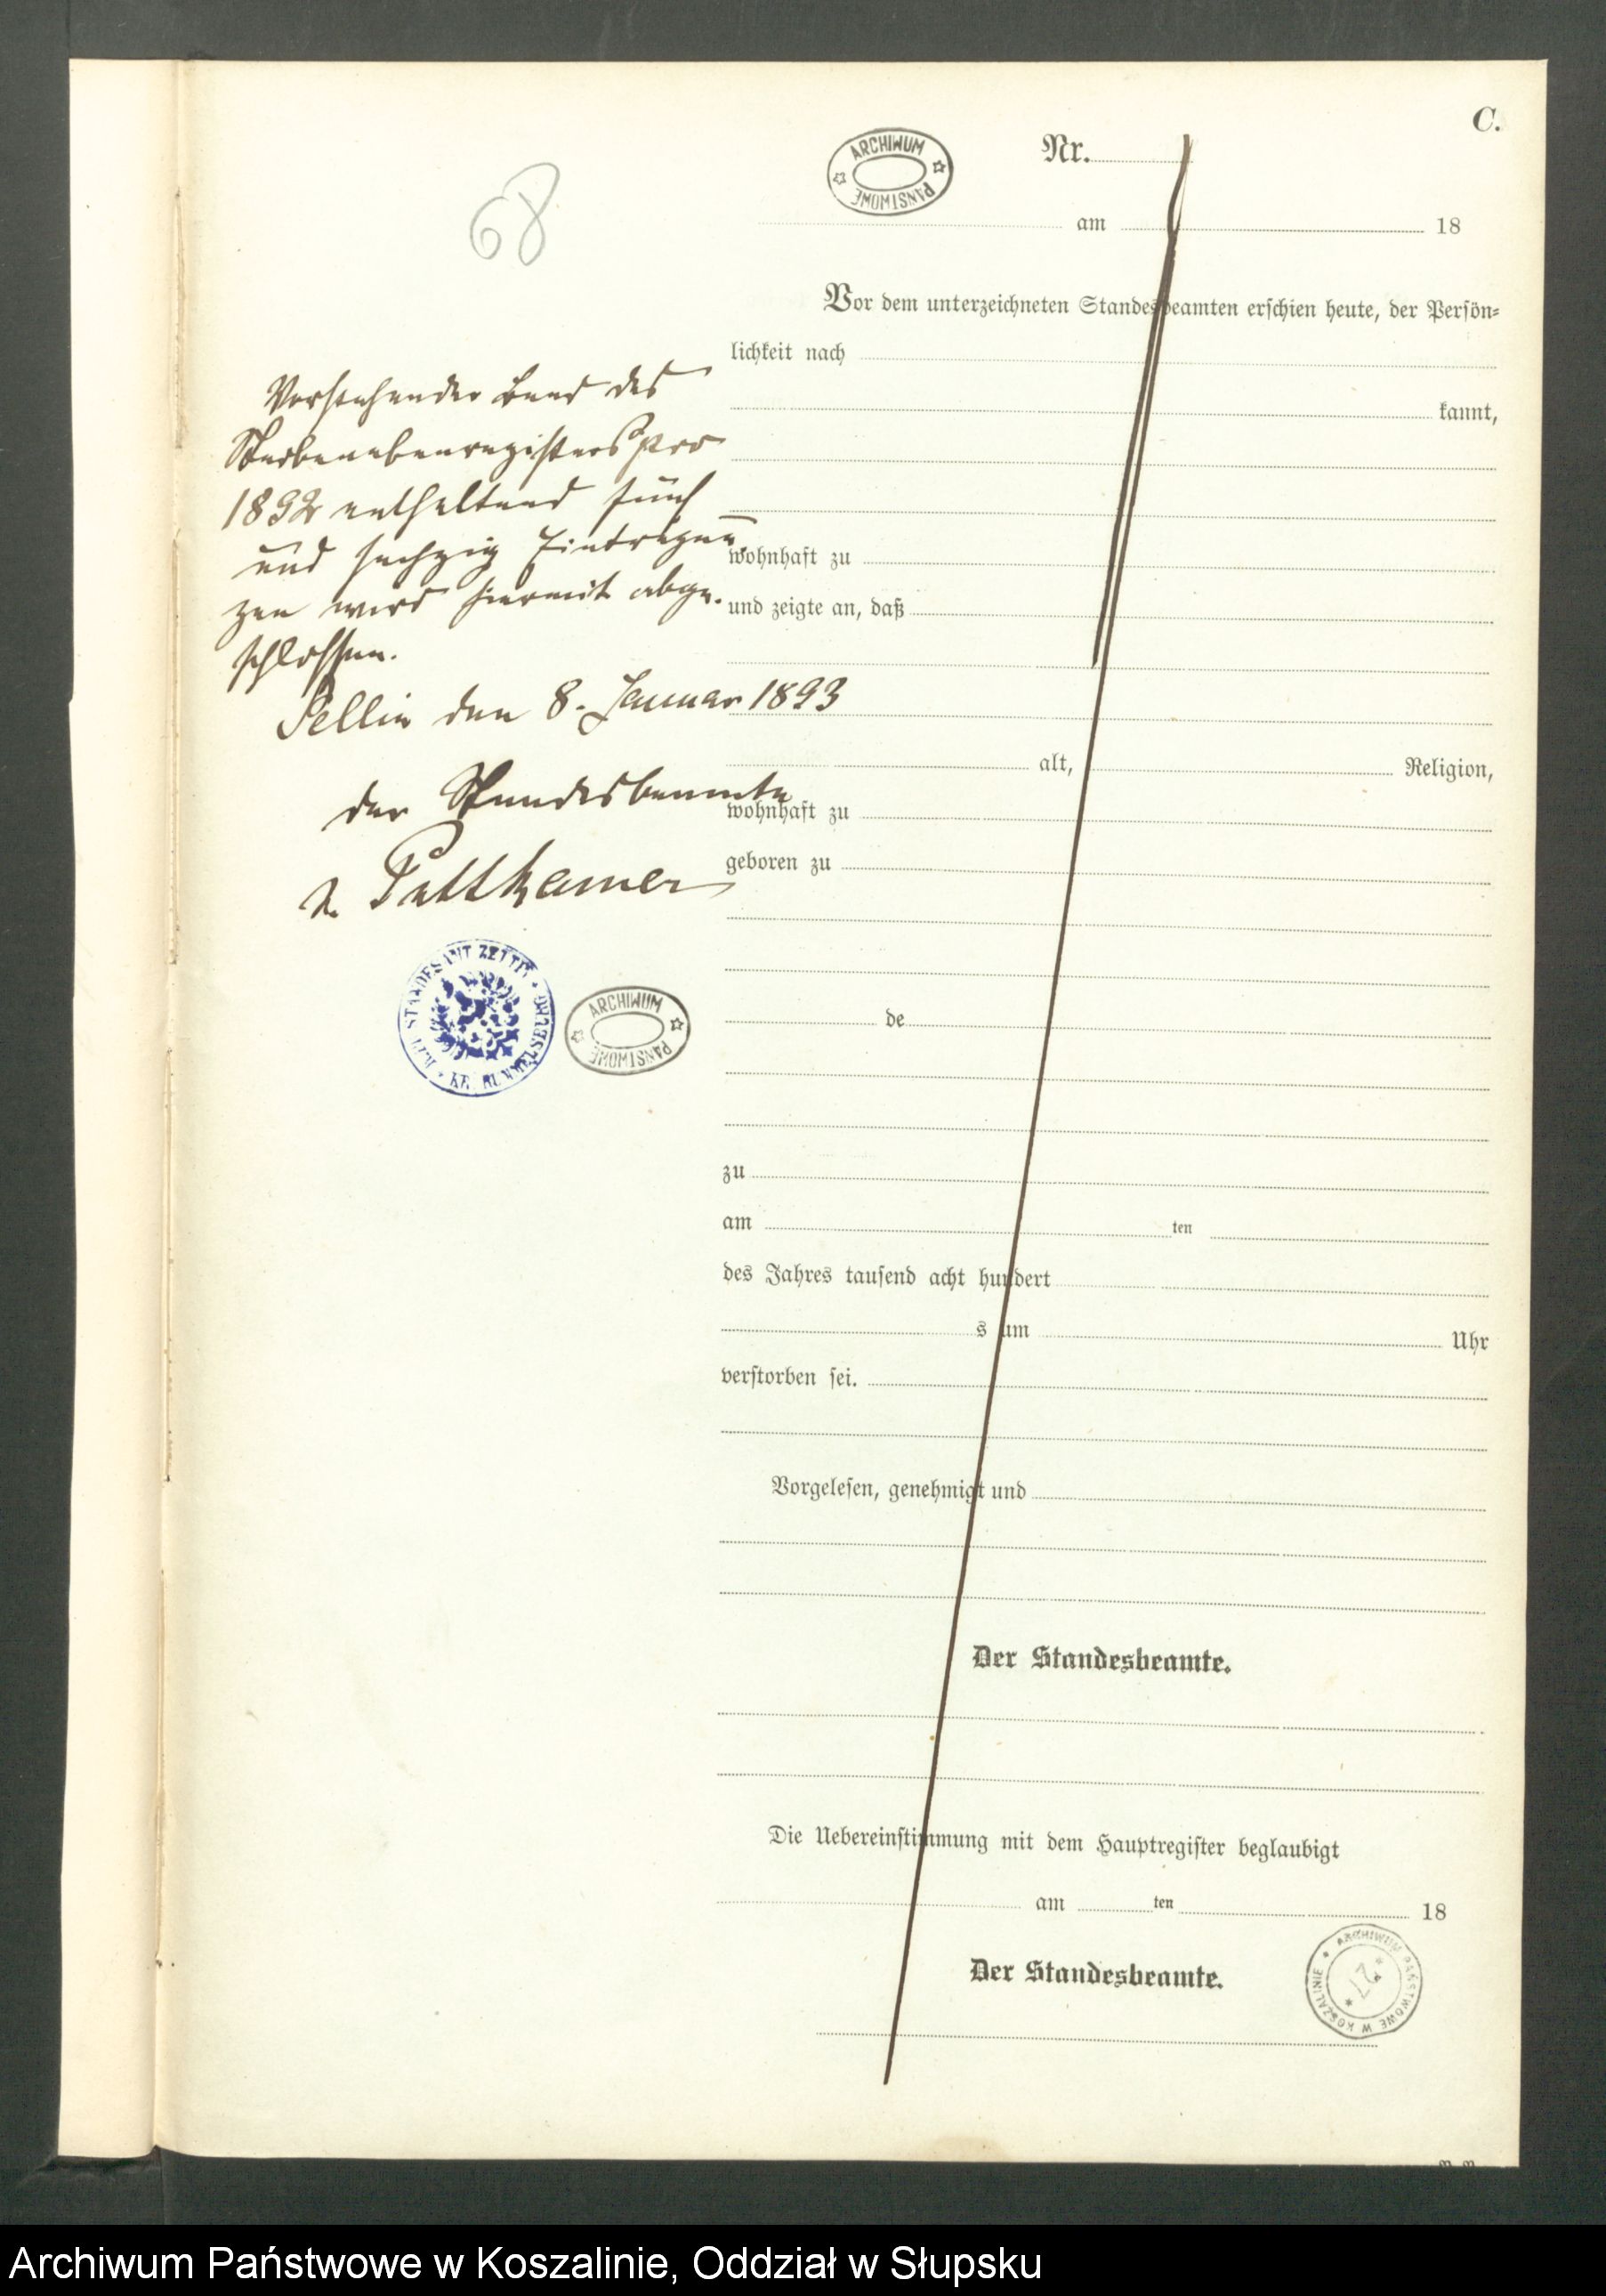 C.
ARCHIWUM PAŃSTWOWE
Nr.
68
am 18
Vor dem unterzeichneten Standesbeamten erschien heute, der Persön-
lichkeit nach
kannt,
wohnhaft zu
und zeigte an, daß
alt, Religion,
wohnhaft zu
geboren zu
de
zu
am ten
des Jahres tausend acht hundert
s um Uhr
verstorben sei.
Vorgelesen, genehmigt und
Der Standesbeamte.
Die Uebereinstimmung mit dem Hauptregister beglaubigt
am ten 18
Der Standesbeamte.
Vorstehender Band des
Sterbenebenregisters pro
1892 enthaltend fünf
und sechzig Eintragun-
gen wird hiermit abge-
schlossen.
Sellin den 8. Januar 1893
der Standesbeamte
v. Puttkamer
STANDESAMT ZETTIN KR. RUMMELSBURG
ARCHIWUM PAŃSTWOWE
ARCHIWUM PAŃSTWOWE W KOSZALINIE
* 27 *
Archiwum Państwowe w Koszalinie, Oddział w Słupsku